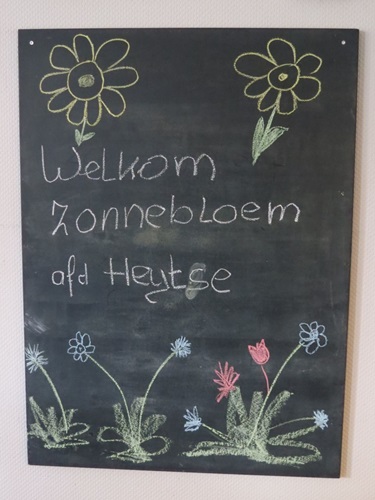 Welkom
Zonnebloem
afd Heytse